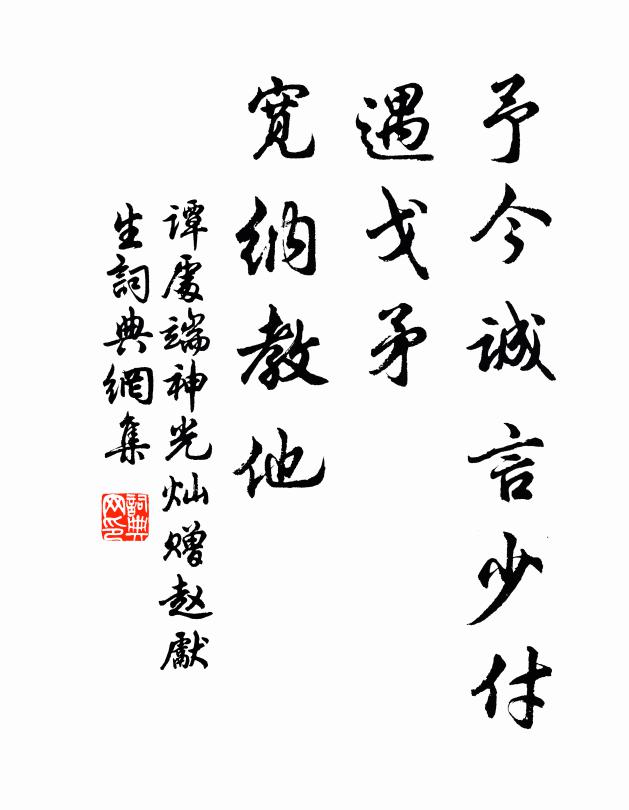 予今誠言少付
遇戈矛
寬納教他
谭處端神光灿赠赵獻
生詞典網集
詞典
网印